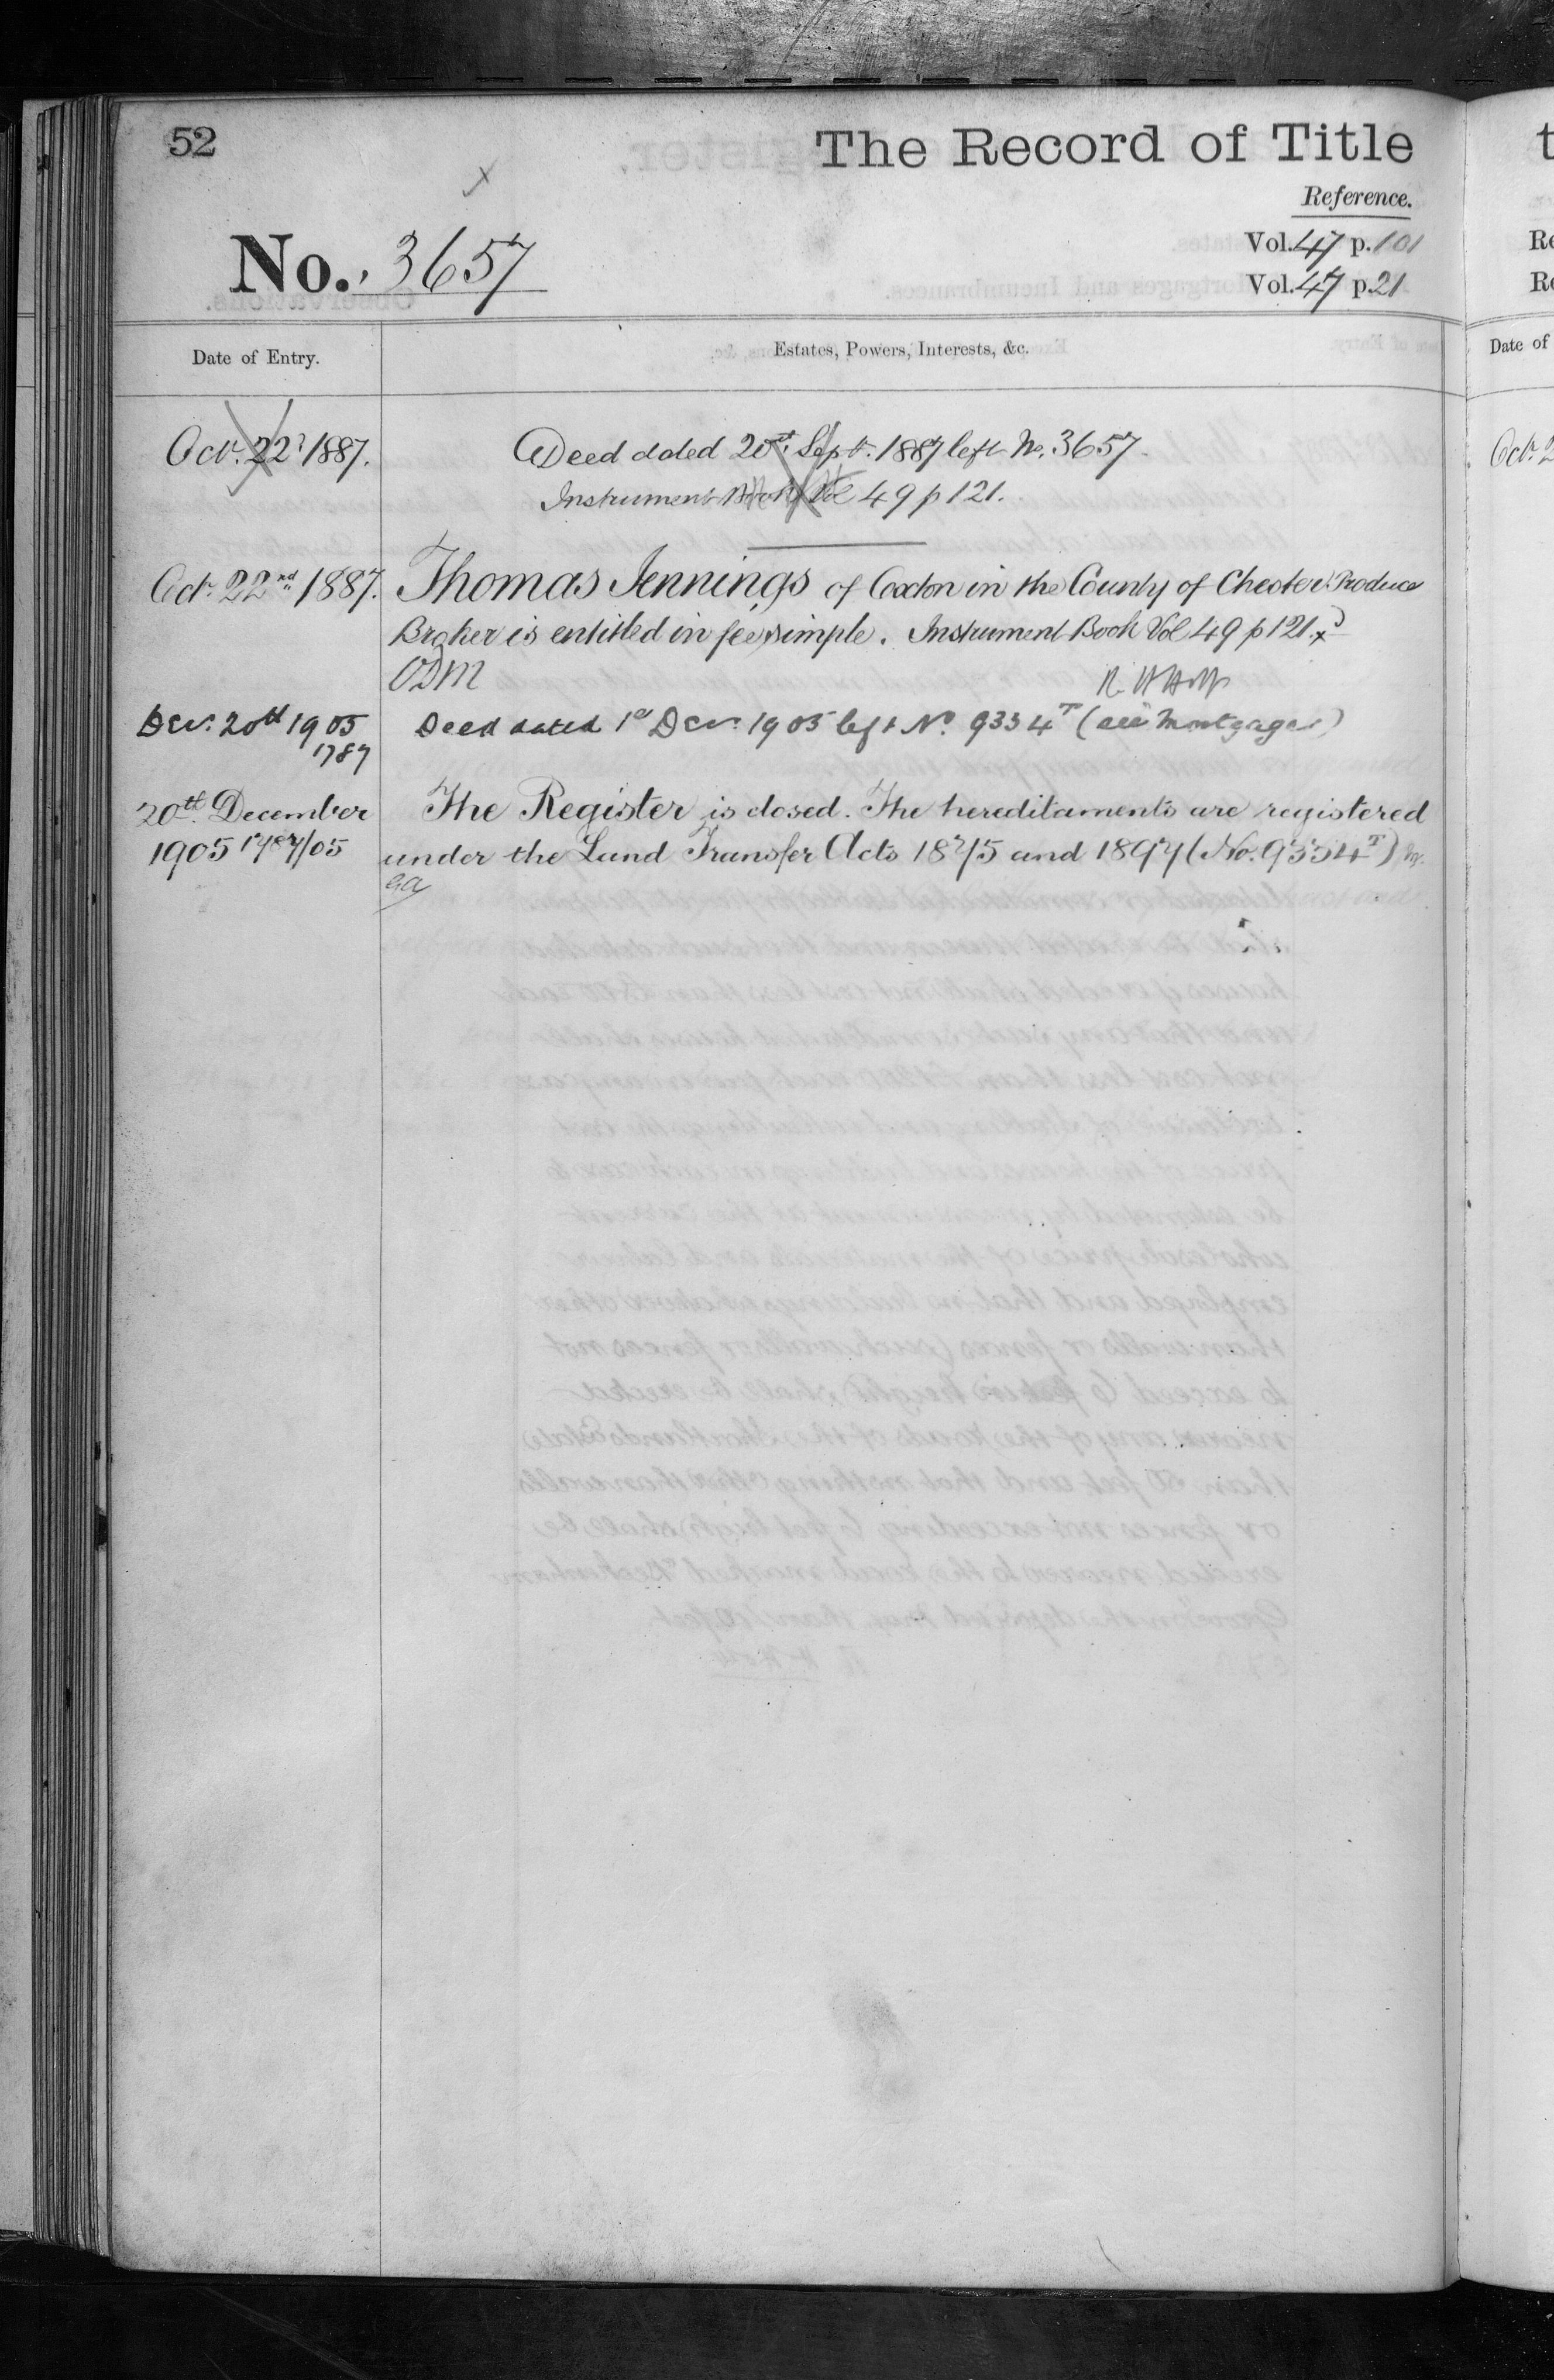 52
The Record of Title
Reference.
Vol. 47 p. 101
Vol. 47 p. 21
No. 3657
Date of Entry.
Estates, Powers, Interests, &c.
Oct. 22 1887.
Deed dated 20th Sept. 1887 left No. 3657.
Instrument Book Vol 49 p 121.
Oct. 22nd 1887.
Thomas Jennings of Oxton in the County of Chester Produce
Broker is entitled in fee simple. Instrument Book Vol 49 p 121.
Decr. 20th 1905
1787
Deed dated 1st Decr. 1905 left No. 9334T (see Mortgages)
20th December
1905 1787/05
The Register is closed. The hereditaments are registered
under the Land Transfer Acts 1875 and 1897 (No. 9334T)
Date of
Oct. 2